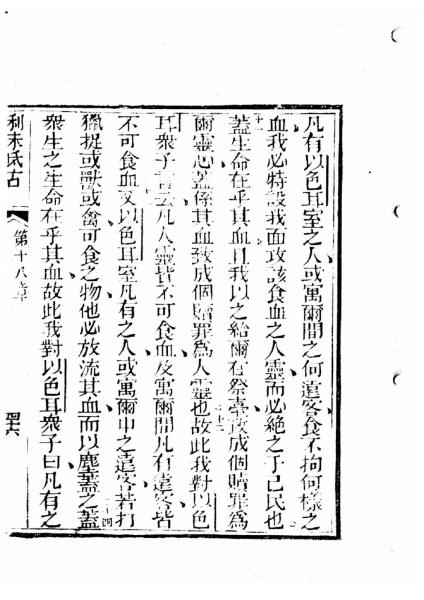 凡有以色耳室之人或寓爾間之何遠客食不拘何樣之
血我必特設我面攻該食血之人靈而必絕之于己民也
十一蓋生命在乎其血且我以之給爾在祭臺致成個贖罪為
爾靈心蓋係其血致成個贖罪為人靈也十二故此我對以色
耳眾子言云凡人靈皆不可食血及寓爾間凡有遠客皆
不可食血又以色耳室凡有之人或寓爾中之遠客若打
獵捉或獸或禽可食之物他必放流其血而以塵蓋之十四蓋
眾生之生命在乎其血故此我對以色耳眾子曰凡有之
利未氏古 第十八章 四六